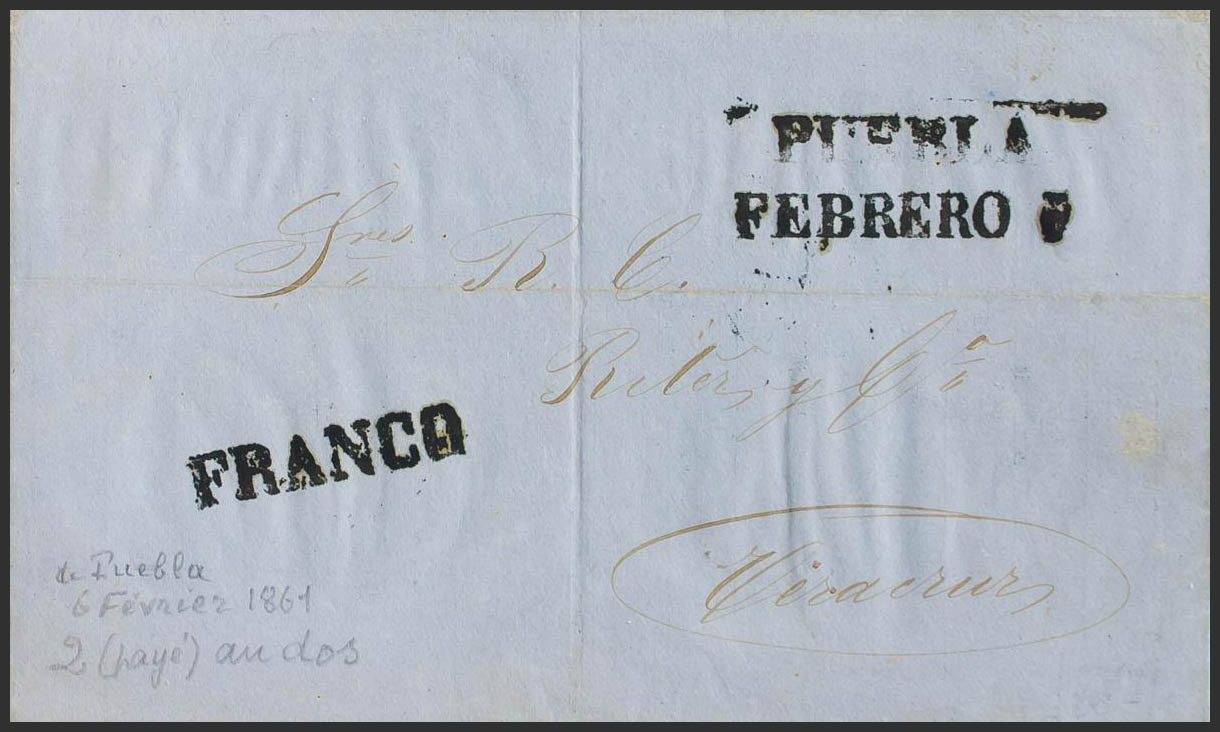 PUEBLA
FEBRERO
Sres. R. C.
Ritter y Ca
FRANCO
Veracruz
de Puebla
6 Février 1861
2 (payé) au dos